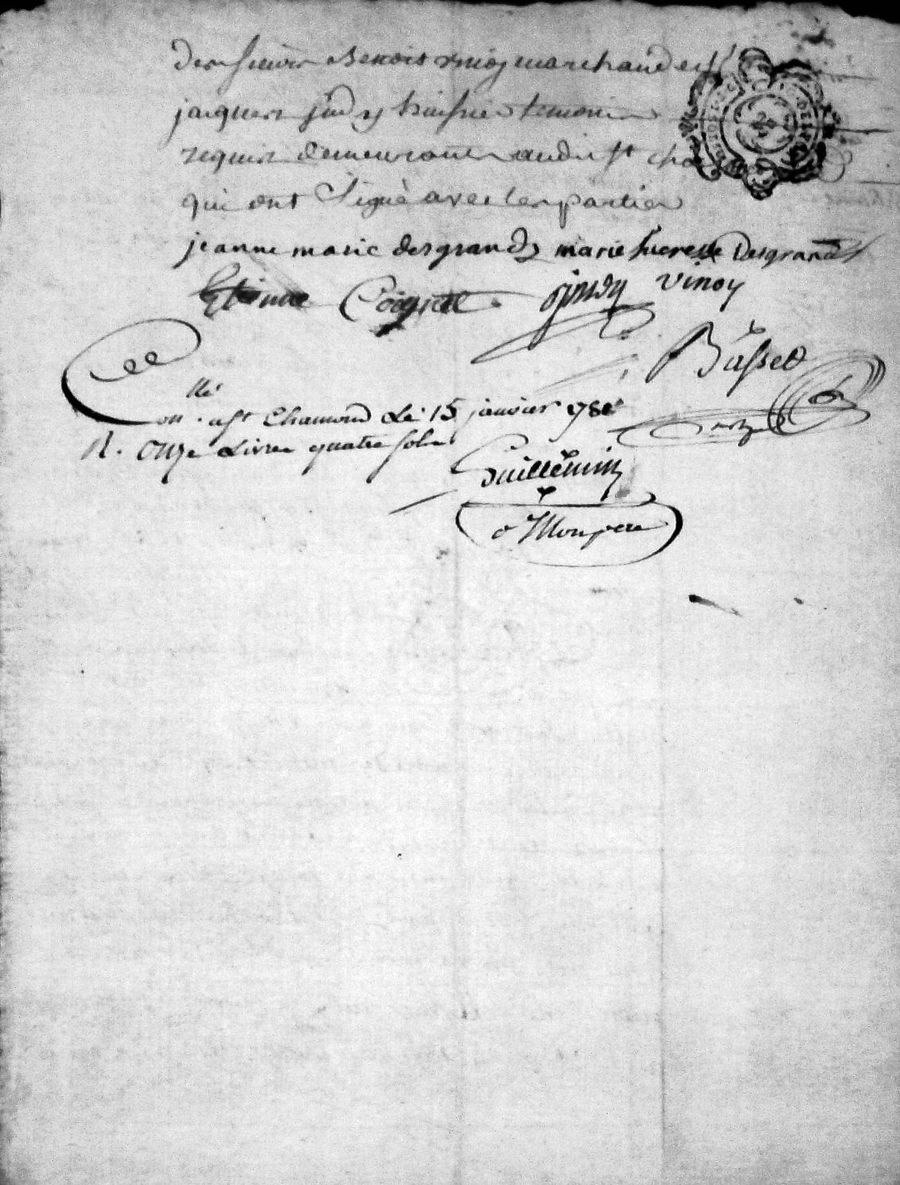 des sieurs Benois vinoy marchand et
jacques jindy huissier temoins
requis demeurants audit st cha
qui ont signé avec les parties
jeanne marie desgrands marie therese Desgrands
Etienne Coignet jindy vinoy
Basset
llé
Con. a st Chamond Le 15 janvier 178
R. Onze Livres quatre sols
Guillemin
Monpere